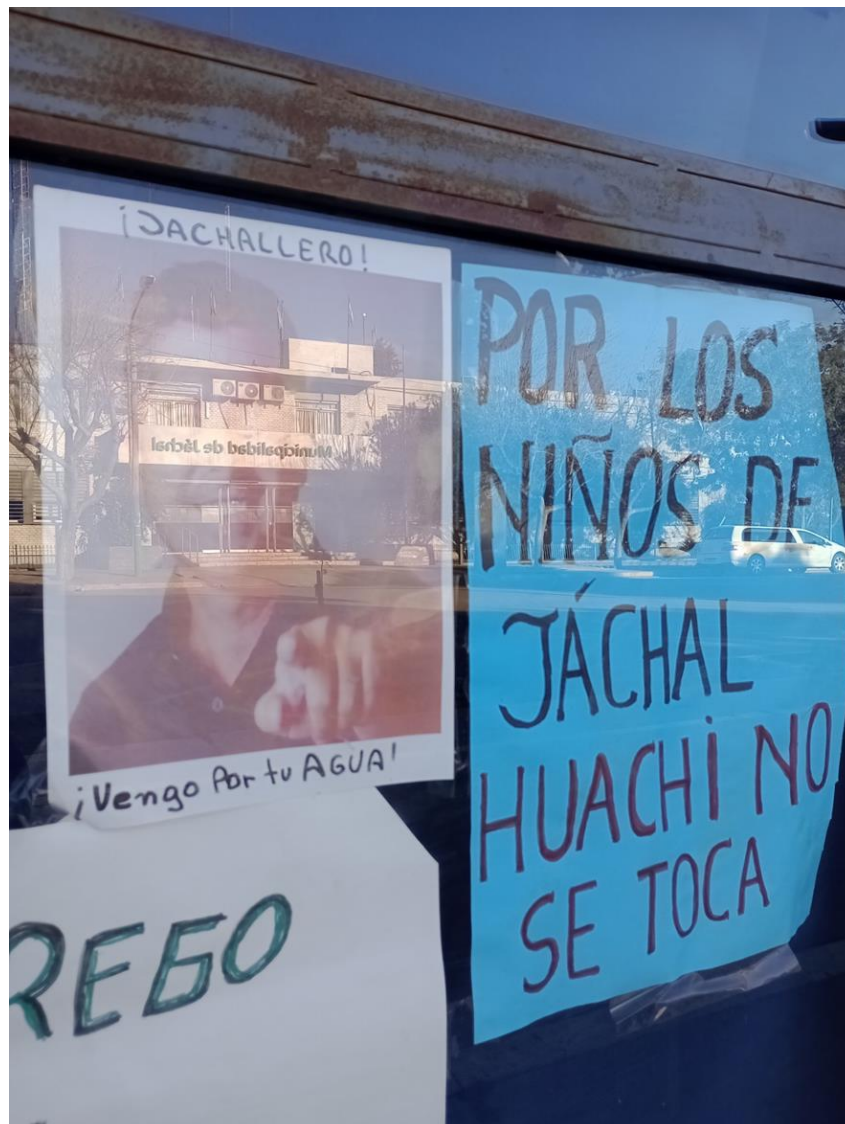 ¡JACHALLERO!
Municipalidad de Jáchal
¡Vengo Por tu AGUA!
REGO
POR LOS
NIÑOS DE
JÁCHAL
HUACHI NO
SE TOCA